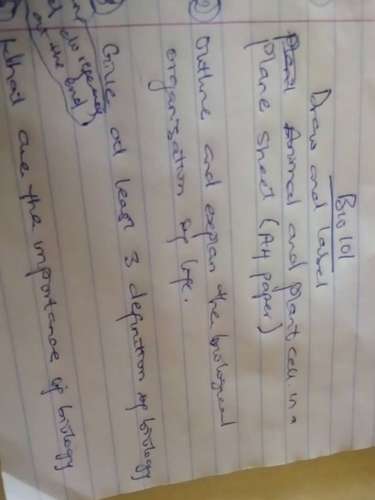 Bio 101
Draw and label
Animal and plant cell in a
plane sheet (A4 paper)
② Outline and explan the biological
organisation of life.
Give at least 3 definition of biology
at the end
What are the importance of biology